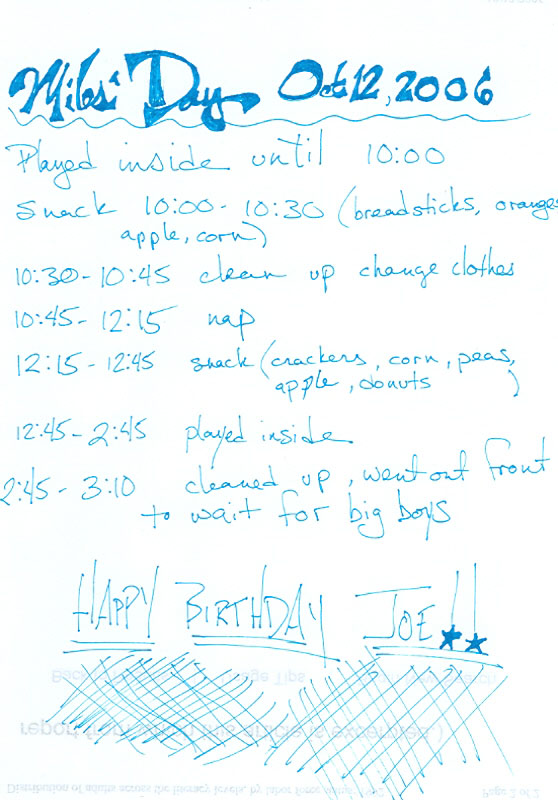 Miles' Day Oct 12, 2006
Played inside until 10:00
Snack 10:00 - 10:30 (breadsticks, orange
apple, corn)
10:30 - 10:45 clean up change clothes
10:45 - 12:15 nap
12:15 - 12:45 snack (crackers, corn, peas,
apple, donuts )
12:45 - 2:45 played inside
2:45 - 3:10 cleaned up, went out front
to wait for big boys
HAPPY BIRTHDAY JOE!!
Distribution of adults across the literacy levels, by labor force
Page 2 of 2